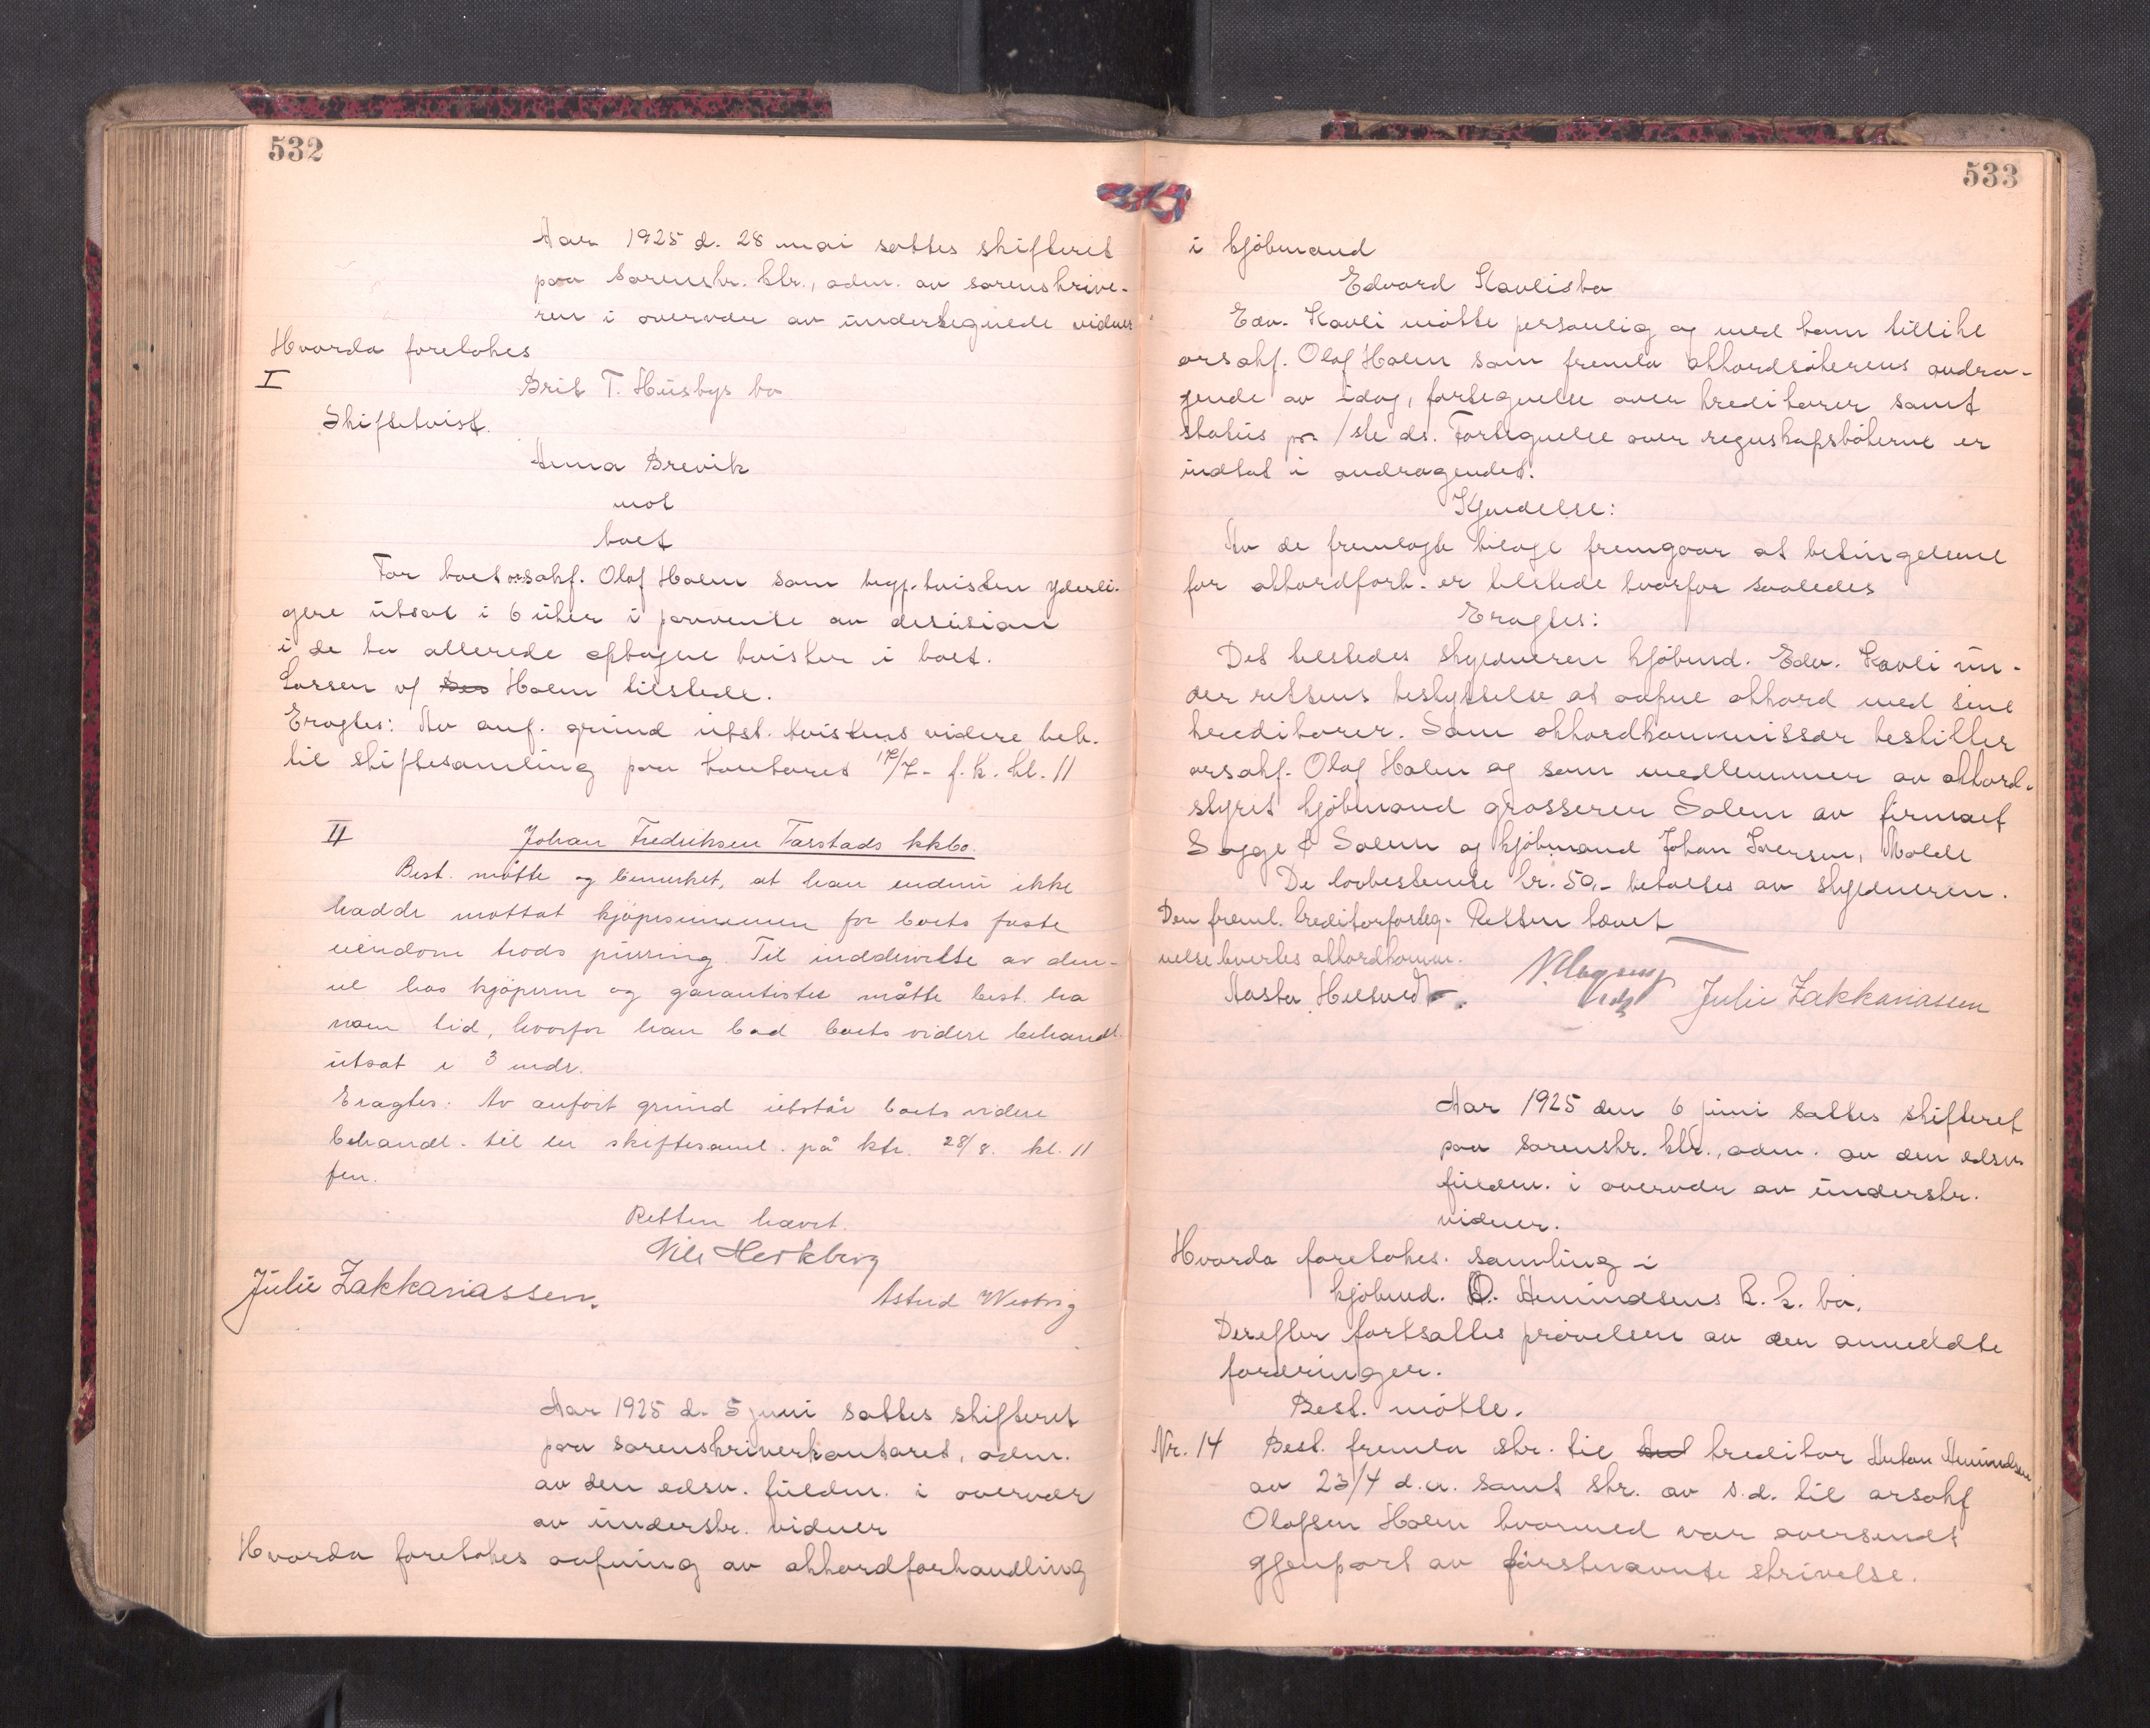 532
Aar 1925 d. 28 mai sattes skifteret
paa sorenskr. ktr., adm. av sorenskrive-
ren i overvær av undertegnede vidner
Hvorda foretokes
I
Brit T. Husbys bo
Skiftetvist.
Anna Brevik
mot
boet
For boet orsakf. Olaf Holm som beg. tvisten yderli-
gere utsat i 6 uker i paavente av desision
i de to allerede optagne tvister i boet.
Larsen v/ Holm tilstede.
Eragtes: Av anf. grund utst. tvistens videre beh.
til skiftesamling paa kontoret 17/7- f.k. kl. 11
II Johan Fredriksen Tarstads kkbo.
Best. møtte og bemerket, at han endnu ikke
hadde mottat kjøpesummen for boets faste
eiendom trods purring. Til inddrivelse av den-
ne hos kjøperen og garantister måtte best. ha
noen tid, hvorfor han bad boets videre behandl.
utsat i 3 mdr.
Eragtes: Av anført grund utstår boets videre
behandl. til en skiftesaml. på ktr. 28/8. kl. 11
fm.
Retten hævet.
Nils Herkberg
Julie Zakkariassen.
Astrid Westvig
Aar 1925 d. 5 juni sattes skifteret
paa sorenskriverkontoret, adm.
av den edsv. fuldm. i overvær
av underskr. vidner
Hvorda foretokes aapning av akkordforhandling
533
i kjøbmand
Edvard Kavlis bo
Edv. Kavli møtte personlig og med ham tillike
orsakf. Olaf Holm som fremla akkordsøkerens andra-
gende av idag, fortegnelse over kreditorer samt
status pr. 1ste ds. Fortegnelse over regnskapsbøkerne er
indtat i andragendet.
Kjendelse:
Av de fremlagte bilage fremgaar at betingelsene
for akkordforh. er tilstede hvorfor saaledes
Eragtes:
Det tilstedes skyldneren kjøbmd. Edv. Kavli un-
der rettens beskyttelse at aapne akkord med sine
kreditorer. Som akkordkommissær beskikkes
orsakf. Olaf Holm og som medlemmer av akkord-
styret kjøbmand grosserer Solem av firmaet
Sagge & Solem og kjøbmand Johan Iversen, Molde
De lovbestemte kr. 50,- betales av skyldneren.
Den freml. kreditorforteg- Retten hævet
nelse leveres akkordkomm.
Aasta Hilsvedt.
Julie Zakkariassen
Aar 1925 den 6 juni sattes skifteret
paa sorenskr. ktr., adm. av den edsv.
fuldm. i overvær av underskr.
vidner.
Hvorda foretokes samling i
kjøbmd. O. Amundsens k. k. bo.
Derefter fortsattes prøvelsen av den anmeldte
fordringer.
Best. møtte.
Nr. 14 Best. fremla skr. til kreditor Anton Amundsen
av 23/4 d.a. samt skr. av s.d. til orsakf
Olafsen Holm hvormed var oversendt
gjenpart av førstnævnte skrivelse.